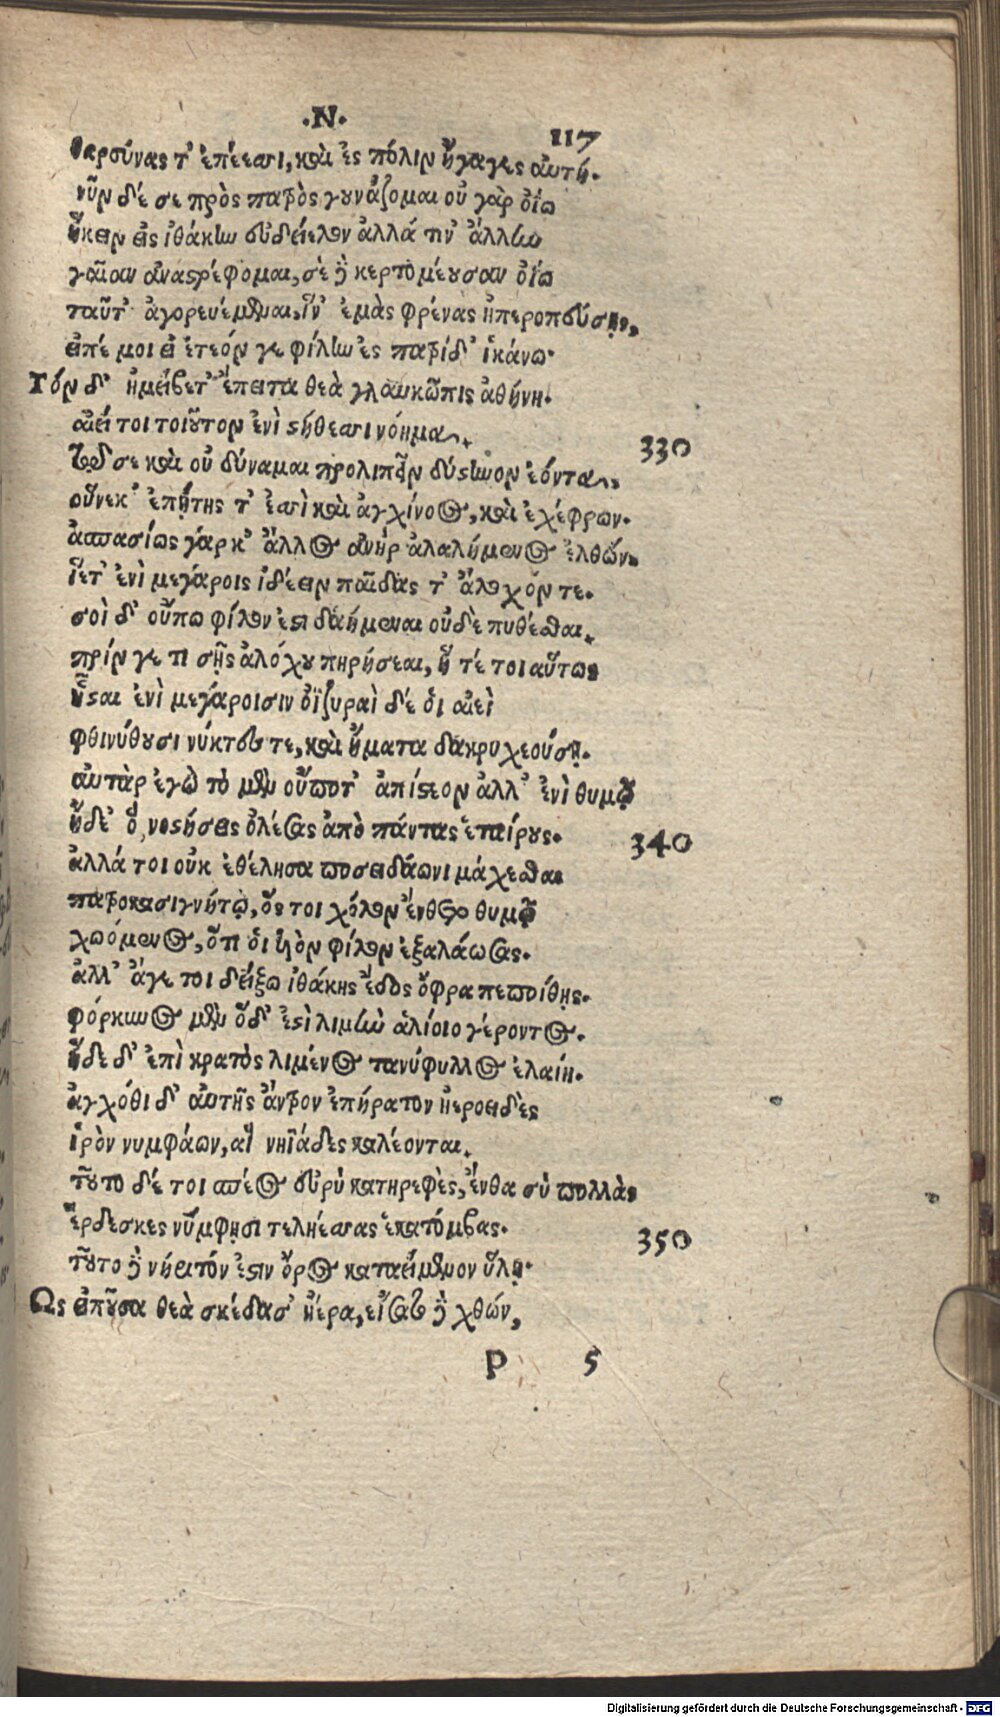 ·Ν·
117
θαρσύνας τ' ἐπέεσσι, καὶ ἐς πόλιν ἤγαγες αὐτή.
νῦν δέ σε πρὸς πατρὸς γουνάζομαι οὐ γὰρ ὀΐω
ἥκειν εἰς ἰθάκην εὐδείελον ἀλλά τιν' ἄλλην
γαῖαν ἀναστρέφομαι, σὲ δὲ κερτομέουσαν ὀΐω
ταῦτ' ἀγορευέμεναι, ἵν' ἐμὰς φρένας ἠπεροπεύσῃς,
εἰπέ μοι εἰ ἐτεόν γε φίλην ἐς πατρίδ' ἱκάνω·
Τόν δ' ἠμείβετ' ἔπειτα θεὰ γλαυκῶπις ἀθήνη.
αἰεί τοι τοιοῦτον ἐνὶ στήθεσσι νόημα.
330
τῷ σε καὶ οὐ δύναμαι προλιπεῖν δύστηνον ἐόντα,
οὕνεκ' ἐπῄτης τ' ἐσσὶ καὶ ἀγχίνοος, καὶ ἐχέφρων.
ἀσπασίως γάρ κ' ἄλλος ἀνὴρ ἀλαλήμενος ἐλθὼν
ἵετ' ἐνὶ μεγάροις ἰδέειν παῖδας τ' ἄλοχόν τε.
σοὶ δ' οὔπω φίλον ἐστὶ δαήμεναι οὐδὲ πυθέσθαι,
πρίν γε τι σῆς ἀλόχου πηρήσεαι, ἥ τέ τοι αὔτως
ἧσται ἐνὶ μεγάροισιν ὀϊζυραὶ δέ ὁι αἰεὶ
φθινύθουσι νύκτες τε, καὶ ἤματα δακρυχεούσῃ.
αὐτὰρ ἐγὼ τὸ μὲν οὔποτ' ἀπίστεον ἀλλ' ἐνὶ θυμῷ
ᾔδε' ὅ, νοστήσεις ὀλέσας ἀπὸ πάντας ἑταίρους.
340
ἀλλά τοι οὐκ ἐθέλησα ποσειδάωνι μάχεσθαι
πατροκασιγνήτῳ, ὅς τοι χόλον ἔνθετο θυμῷ
χωόμενος, ὅτι ὁι υἱὸν φίλον ἐξαλάωσας.
ἀλλ' ἄγε τοι δείξω ἰθάκης ἕδος ὄφρα πεποίθῃς.
φόρκυνος μὲν ὅδ' ἐστὶ λιμὴν ἁλίοιο γέροντος.
ἥδε δ' ἐπὶ κρατὸς λιμένος τανύφυλλος ἐλαίη.
ἀγχόθι δ' αὐτῆς ἄντρον ἐπήρατον ἠεροειδὲς
ἱρὸν νυμφάων, αἳ νηϊάδες καλέονται.
τοῦτο δέ τοι σπέος εὐρὺ κατηρεφὲς, ἔνθα σὺ πολλὰς
ἔρδεσκες νύμφῃσι τεληέσσας ἑκατόμβας.
350
τοῦτο δὲ νήριτόν ἐστιν ὄρος καταείμενον ὕλῃ.
Ὣς εἰποῦσα θεὰ σκέδασ' ἠέρα, εἴσατο δὲ χθών,
P 5
Digitalisierung gefördert durch die Deutsche Forschungsgemeinschaft · DFG